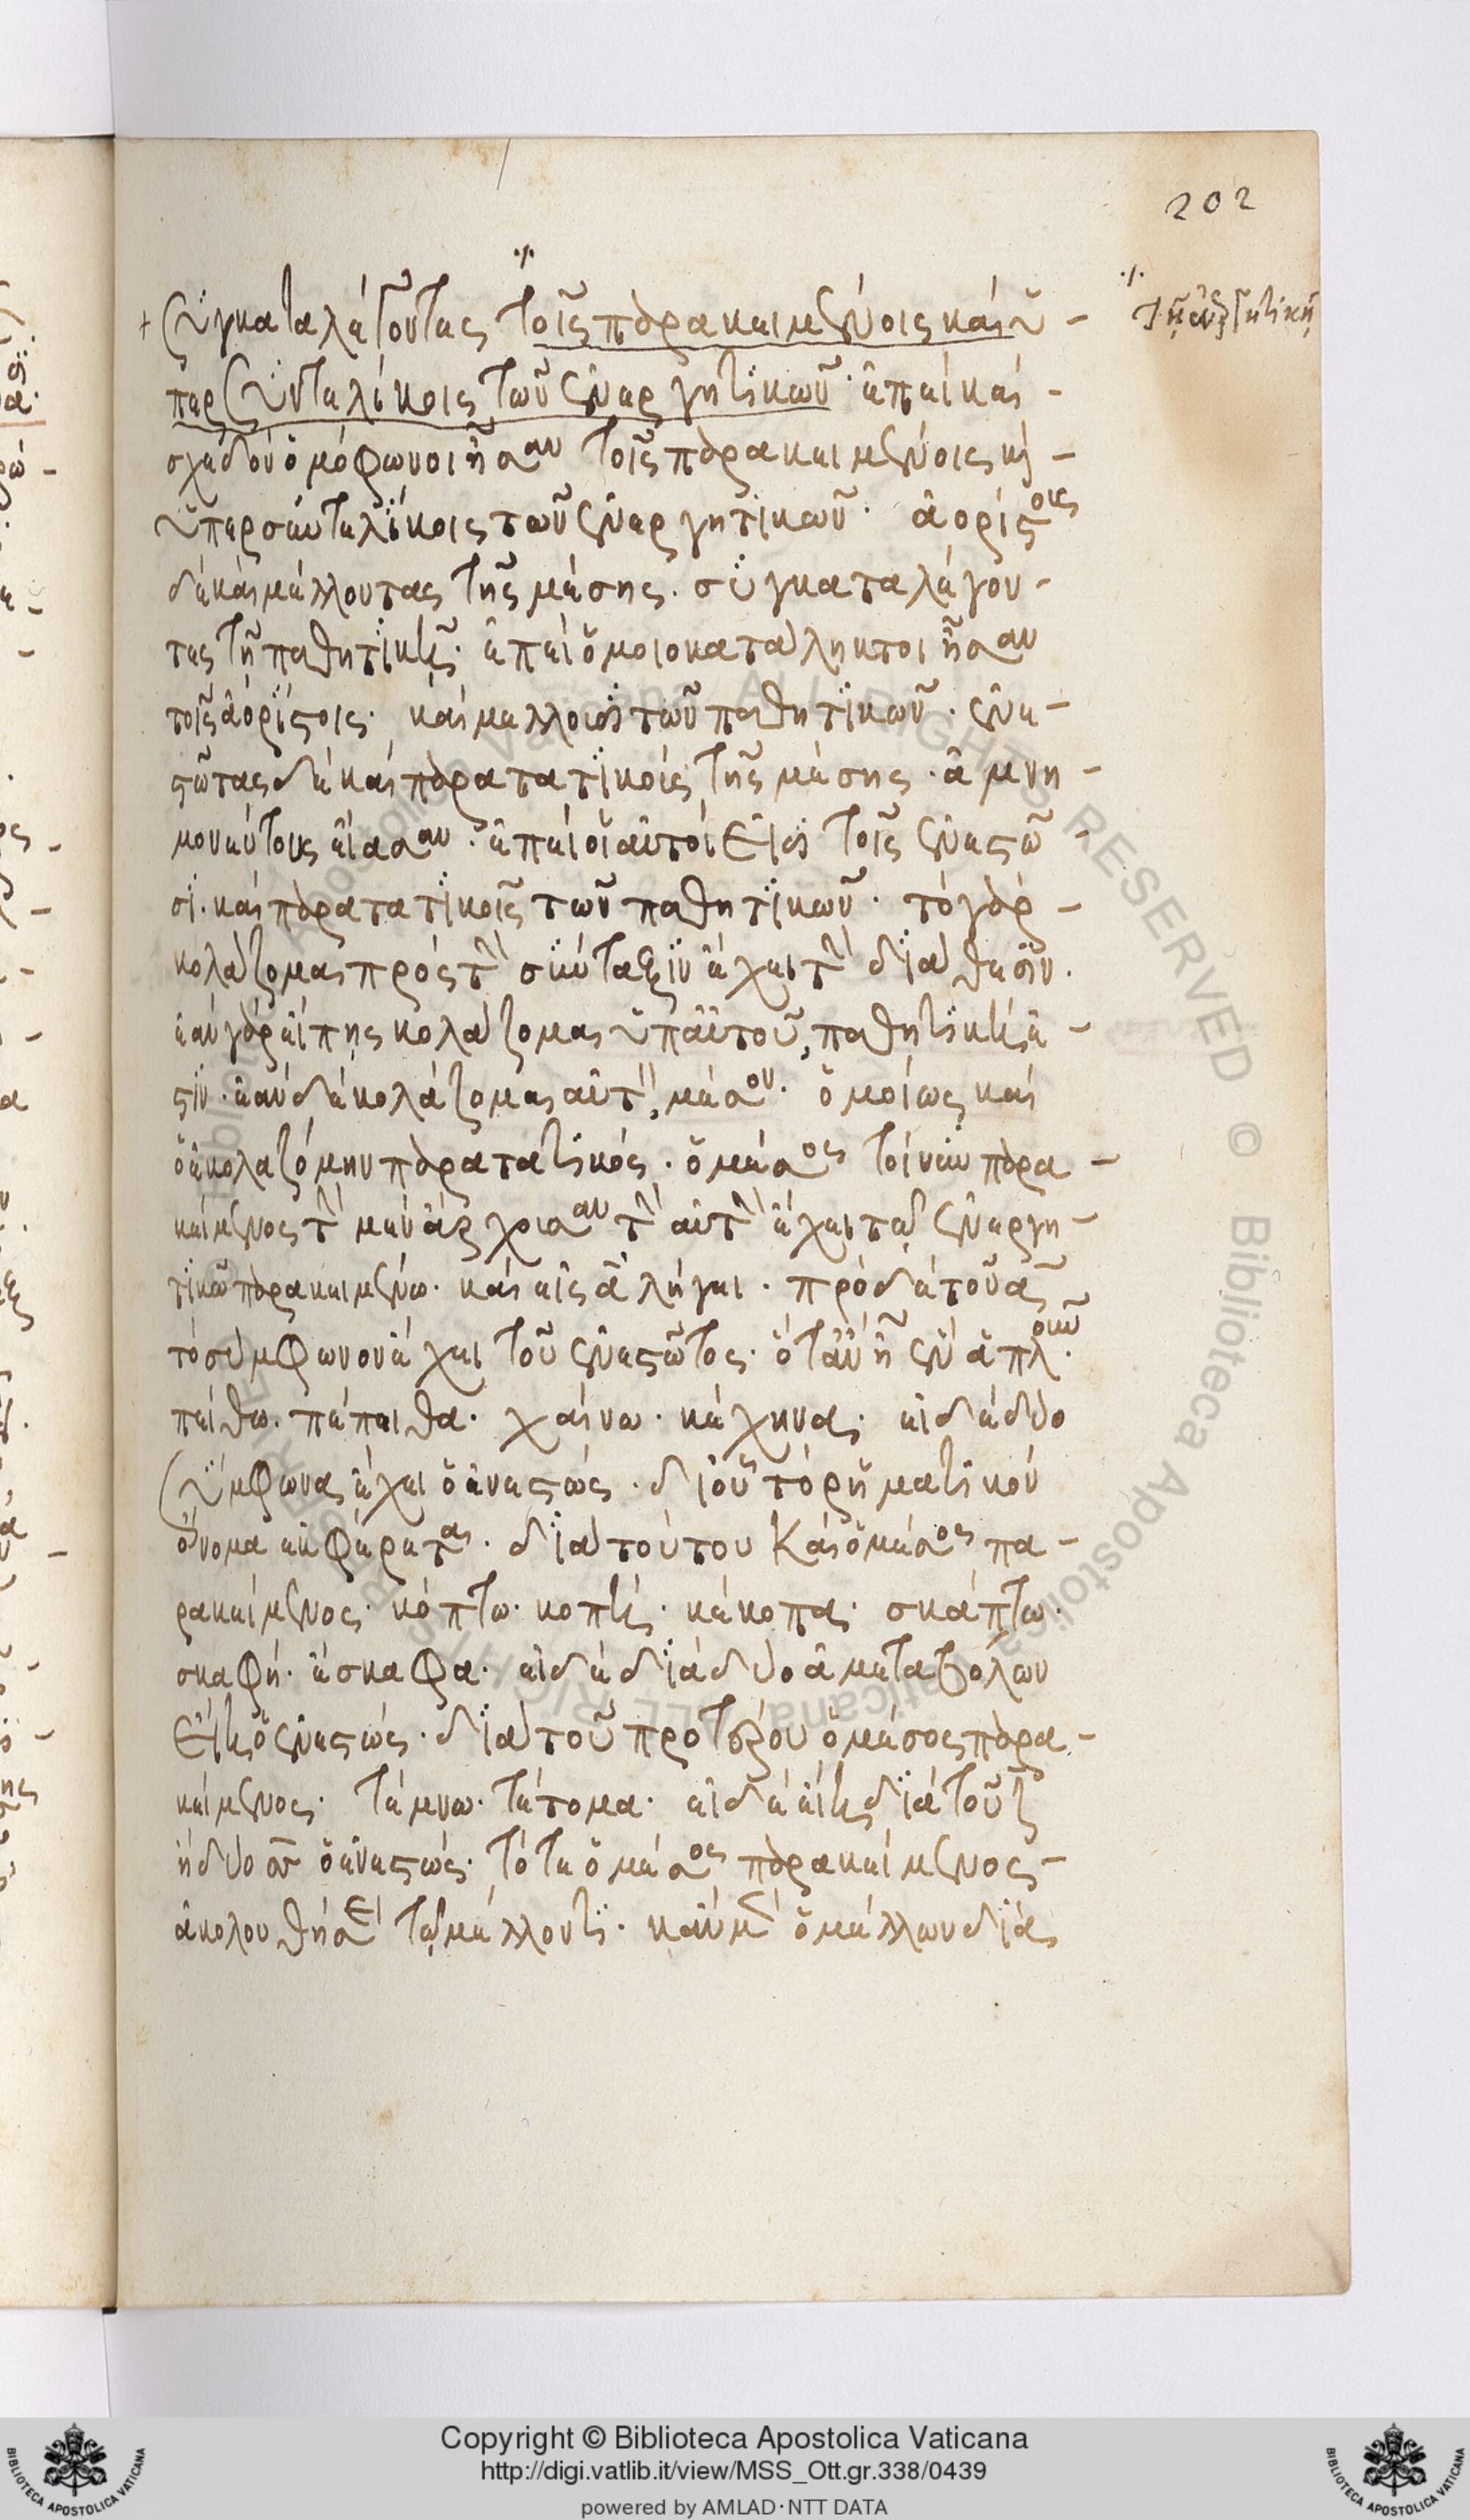 202
συγκαταλέγοντες τοῖς παρακειμένοις καὶ ὑ-
τῇ ἐνεργητικῇ
περσυντελίκοις τῶν ἐνεργητικῶν· ἐπεὶ καὶ -
σχεδὸν ὁμόφωνοι ἦσαν τοῖς παρακειμένοις κὶ -
ὑπερσυντελίκοις τῶν ἐνεργητικῶν· ἀορίστοις
δὲ καὶ μέλλοντας τῆς μέσης. συγκαταλέγον-
τες τῇ παθητικῇ· ἐπεὶ ὁμοιοκατάληκτοι ἦσαν
τοῖς ἀορίστοις· καὶ μέλλουσι τῶν παθητικῶν· ἐνε-
στῶτας δὲ καὶ παρατατικοὺς τῆς μέσης. ἀμνη-
μονεύτους εἴασαν· ἐπεὶ οἱ αὐτοί εἰσι τοῖς ἐνεστῶ-
σι. καὶ παρατατικοῖς τῶν παθητικῶν· τὸ γὰρ -
κολάζομαι πρὸς τὴν σύνταξιν ἔχει τὴν διάθεσιν.
ἐὰν γὰρ εἴπῃς κολάζομαι ὑπ' αὐτοῦ, παθητική ἐ-
στιν· ἐὰν δὲ κολάζομαι αὐτὸν, μέσον· ὁμοίως καὶ
ὁ ἐκολαζόμην παρατατικός· ὁ μέσος τοίνυν παρα-
κείμενος τὴν μὲν ἄρχουσαν τὴν αὐτὴν ἔχει τῷ ἐνεργη-
τικῷ παρακειμένῳ· καὶ εἰς α λήγει· πρὸ δὲ τοῦ α
τὸ σύμφωνον ἔχει τοῦ ἐνεστῶτος· ὅταν ᾖ ἓν ἁπλοῦν·
πείθω. πέποιθα· χαίνω· κέχηνα· εἰ δὲ δύο
σύμφωνα ἔχει ὁ ἐνεστώς· δι' οὗ τὸ ῥηματικὸν
ὄνομα ἐκφέρεται· διὰ τούτου καὶ ὁ μέσος πα-
ρακείμενος· κόπτω· κοπή· κέκοπα· σκάπτω·
σκαφή· ἔσκαφα· εἰ δὲ διὰ δύο ἀμεταβόλων
εἴη ὁ ἐνεστώς· διὰ τοῦ προτέρου ὁ μέσος παρα-
κείμενος· τέμνω· τέτομα· εἰ δὲ εἴη διὰ τοῦ ζ
ἢ δύο σσ ὁ ἐνεστώς· τότε ὁ μέσος παρακείμενος -
ἀκολουθήσει τῷ μέλλοντι· κἂν μὲν ὁ μέλλων διὰ
Copyright © Biblioteca Apostolica Vaticana
http://digi.vatlib.it/view/MSS_Ott.gr.338/0439
powered by AMLAD·NTT DATA